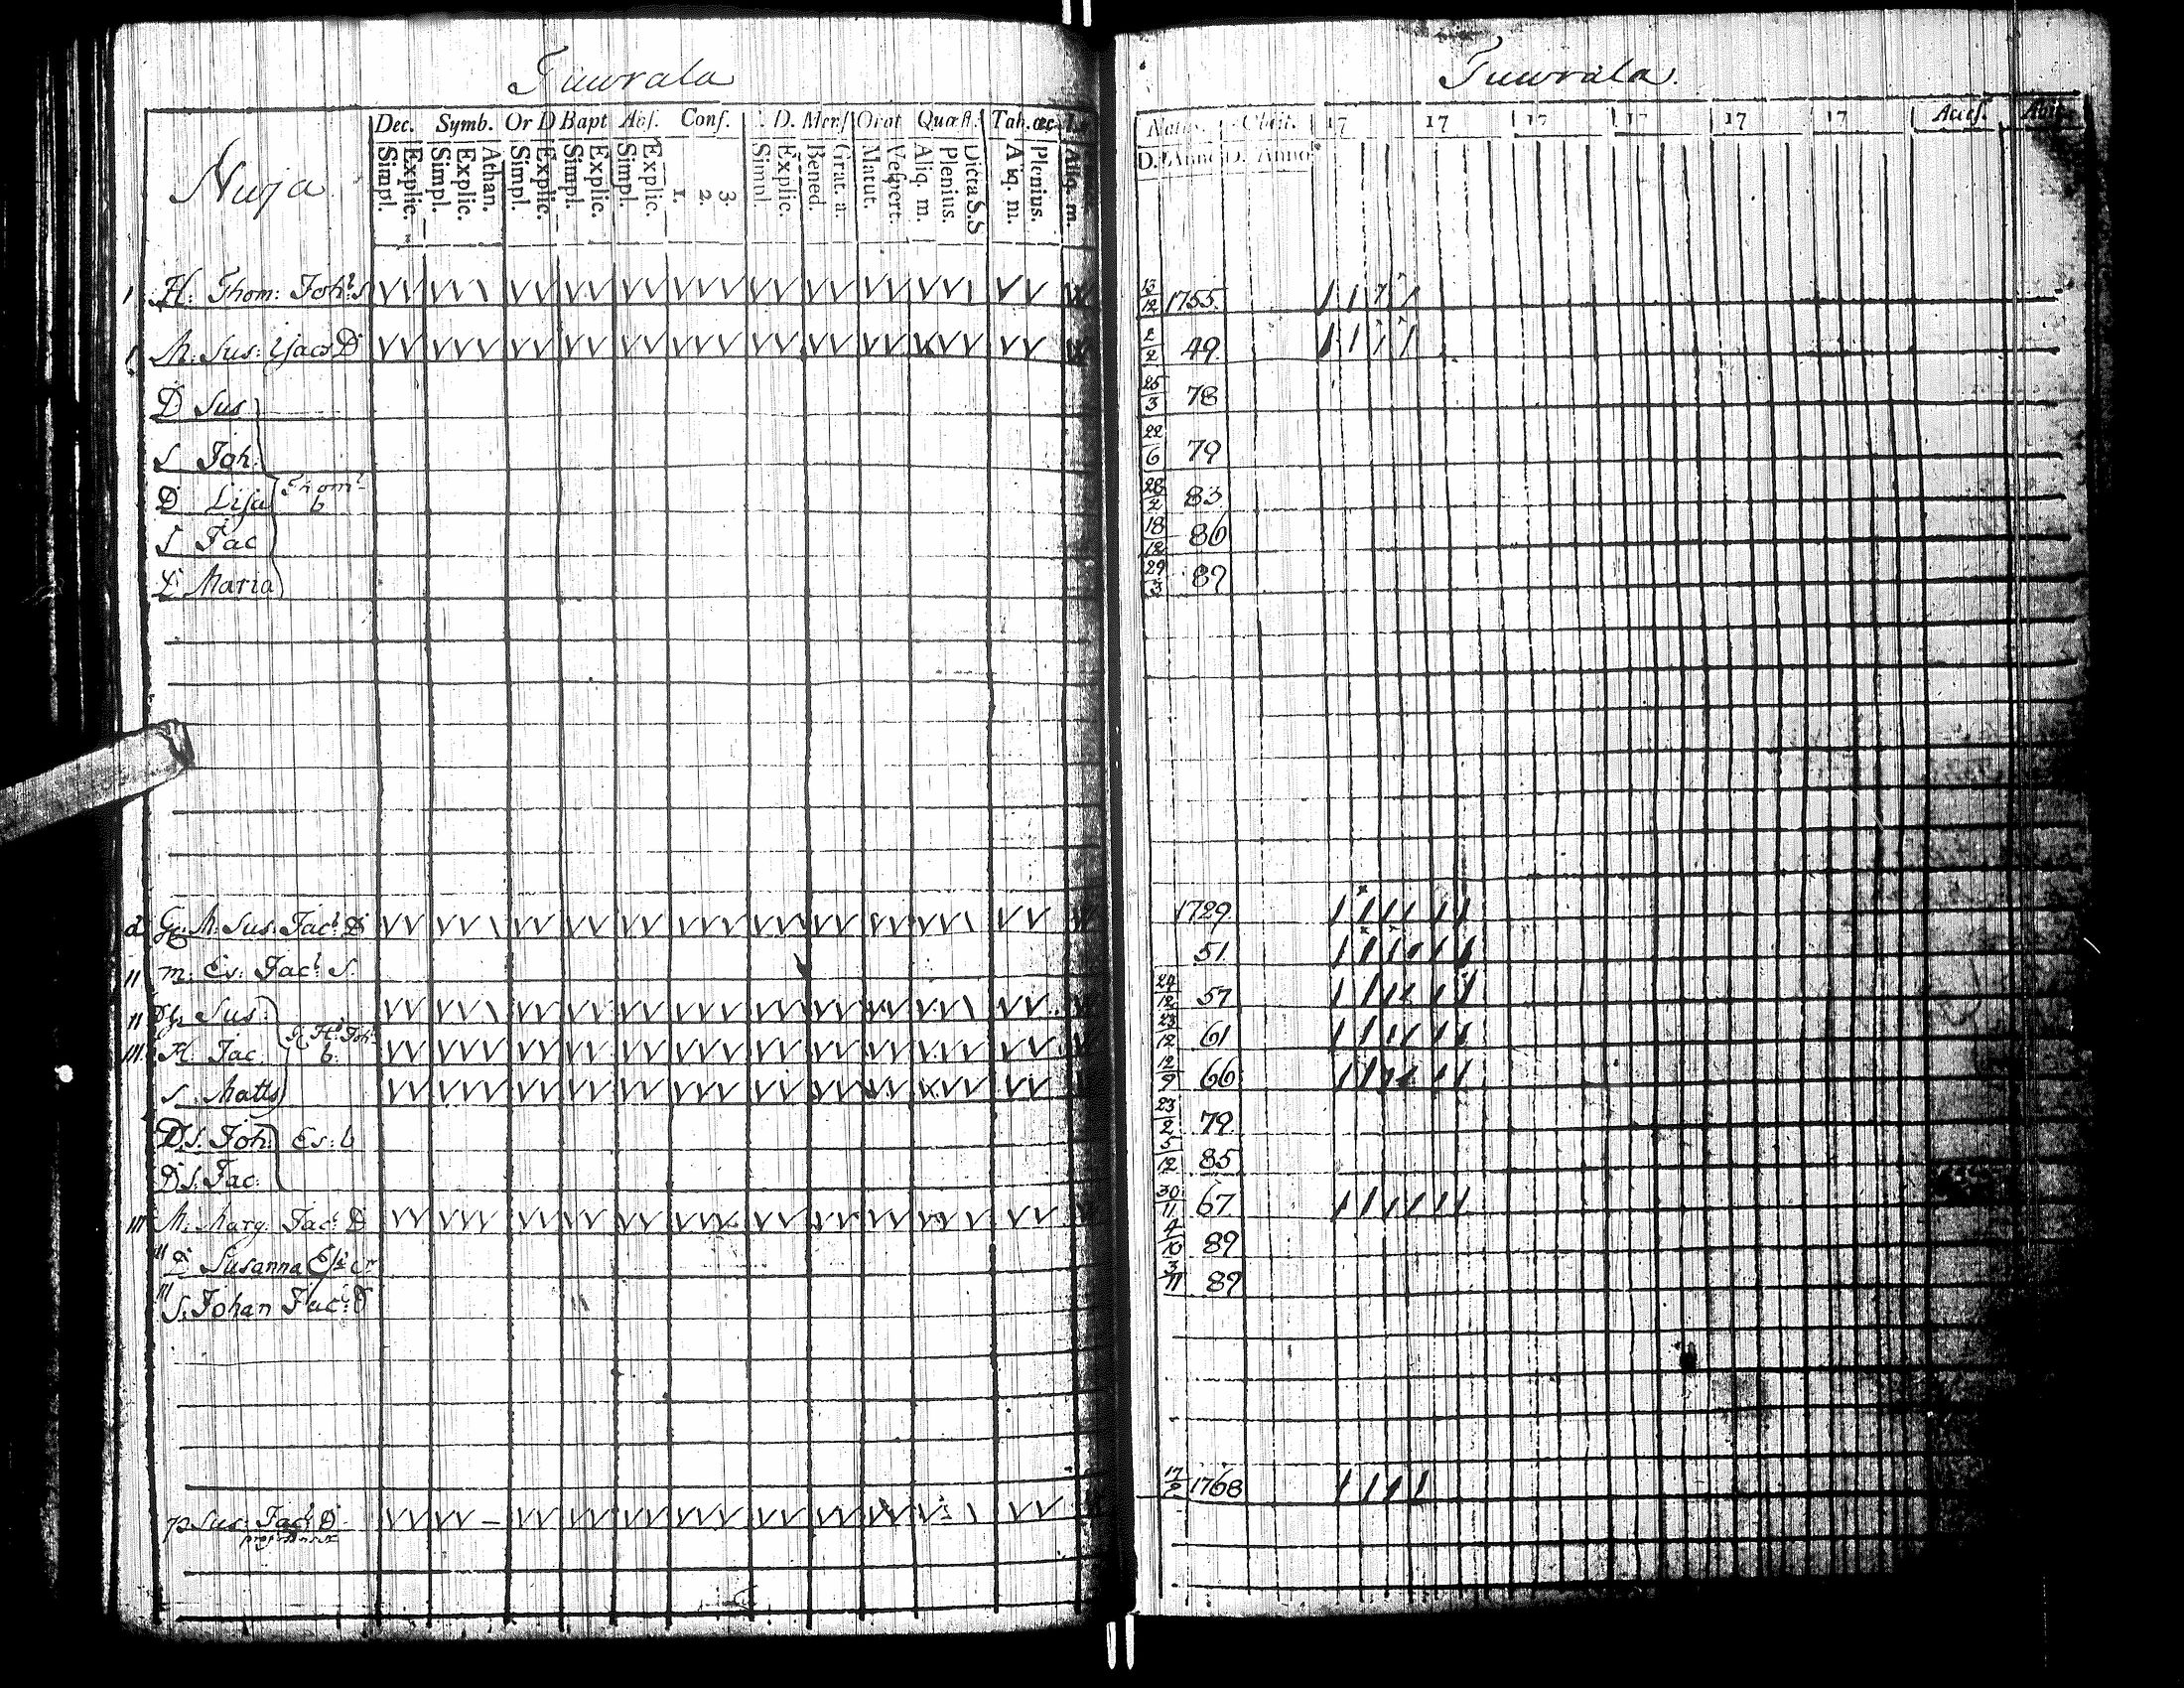 Tuwrala
Nuja
Dec. Symb. Or D Bapt Abs. Conf. C. D. Mens. Orat Quæst. Tab. œc.
Simpl. Explic. Simpl. Explic. Athan. Simpl. Explic. Simpl. Explic. Simpl. Explic. 1. 2. 3. Simpl. Explic. Bened. Grat. a. Matut. Vespert. Aliq. m. Plenius. Dicta S.S Aliq. m. Plenius. Aliq. m.
H: Thom: Joh: S
M: Sus: D
D Sus
S Joh:
D Lisa Thom: b
S Jac
D Maria
M Sus: Jac: D
m: Es: Jac: S.
Sus
H Jac
S. Matts
S. Joh: Es: b
S. Jac:
M: Marg: Jac: D
D Susanna
S. Johan Jac: D
p Sus: Jac: D
Tuwrala.
Natus. Obiit. 17 17 17 17 17 17 Access. Abit.
D. Anno D. Anno
13/12 1755.
2/2 49
25/3 78
22/6 79
28/2 83
18/12 86
29/3 89
1729
51.
24/12 57
23/12 61
12/9 66
23/2 79
5/12 85
30/11 67
4/10 89
3/11 89
17/2 1768